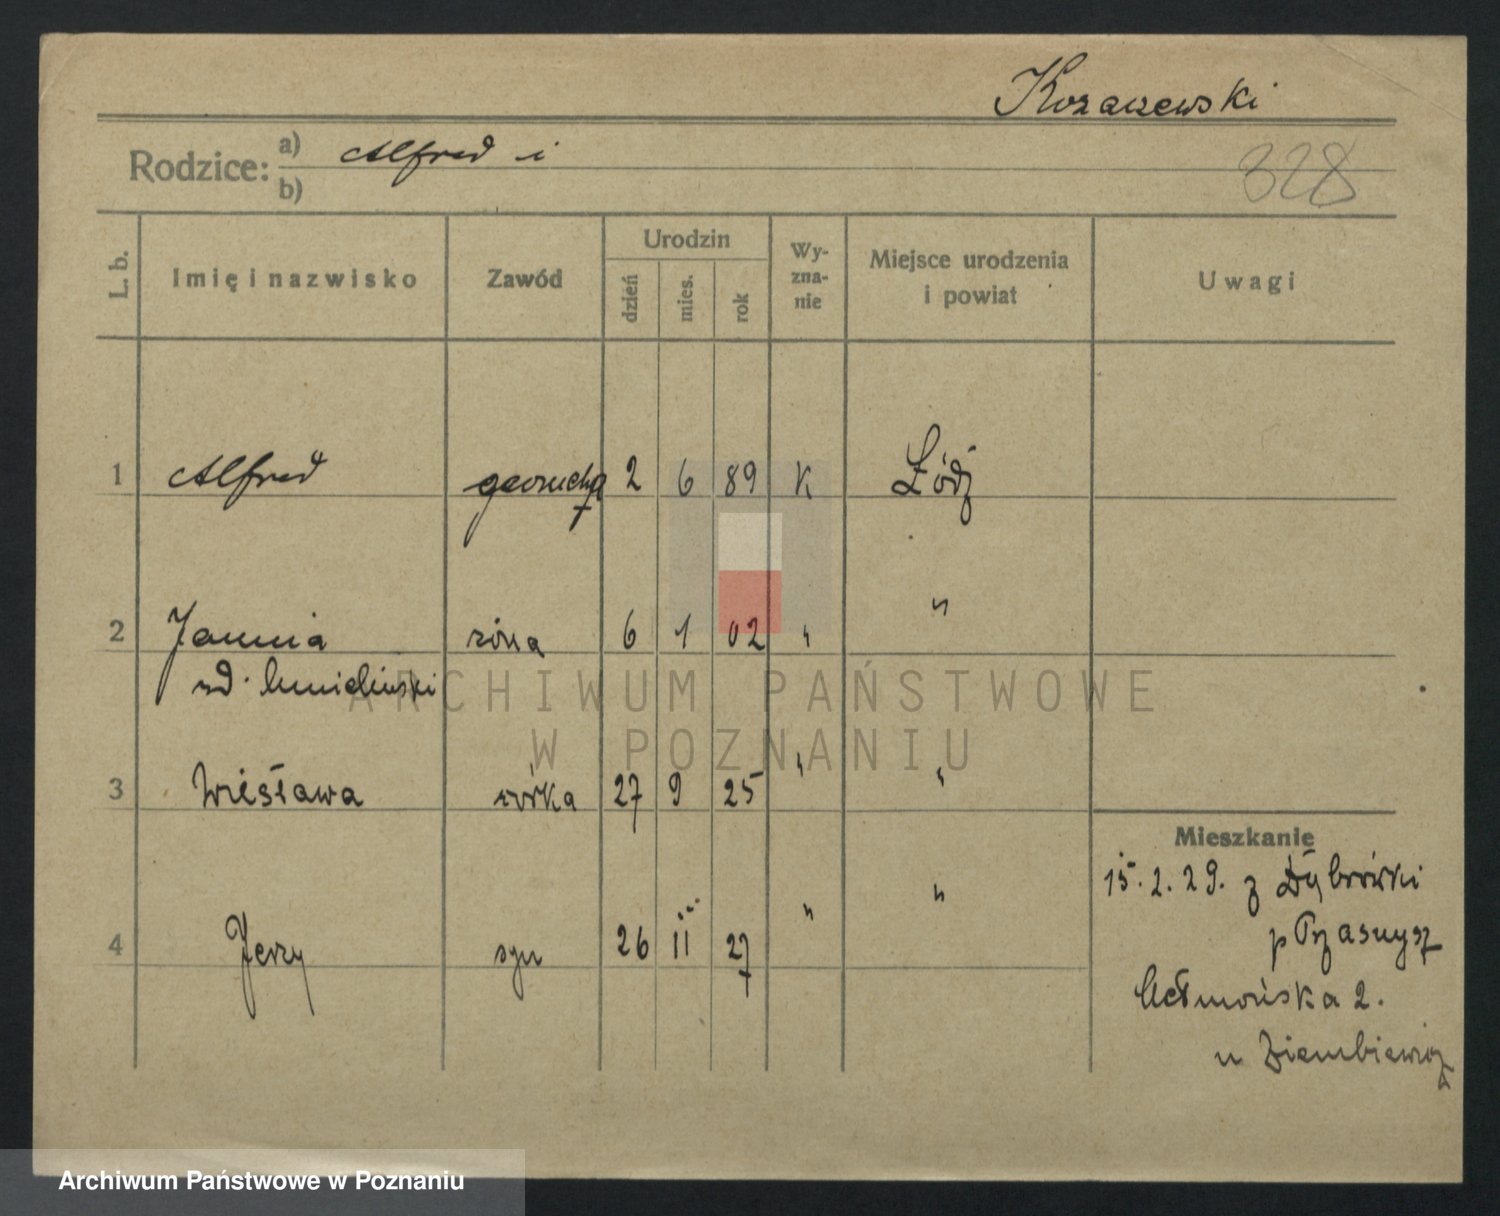 Kozaczewski
Rodzice: a) Alfred i
b)
328
L. b.
Imię i nazwisko
Zawód
Urodzin
dzień
mies.
rok
Wy-
zna-
nie
Miejsce urodzenia
i powiat
Uwagi
1 Alfred 2 6 89 K Łódź
2 Janina żona 6 1 02 " "
3 Wiesława córka 27 9 25 " "
4 Jerzy syn 26 II 27 " "
Mieszkanie
15.2.29. z Dąbrówki
p Przasnysz
2.
u Ziembiewicz
ARCHIWUM PAŃSTWOWE
W POZNANIU
Archiwum Państwowe w Poznaniu